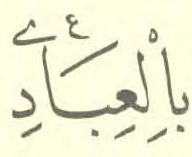 بِالْعِبَادِ